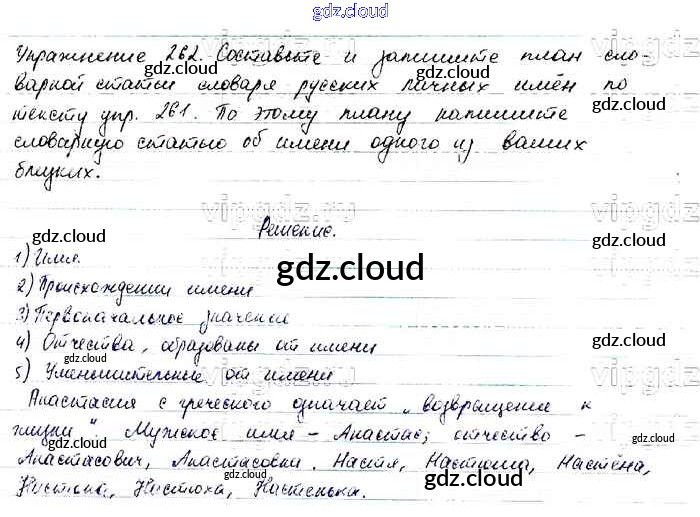 gdz.cloud
Упражнение 262. Составьте и запишите план сло-
варной статьи словаря русских личных имён по
тексту упр. 261. По этому плану напишите
словарную статью об имени одного из ваших
близких.
Решение.
1) Имя.
2) Происхождении имени
3) Первоначальное значение
4) Отчества, образованы от имени
5) Уменьшительные от имени
Анастасия с греческого означает „возвращение к
жизни“ Мужское имя – Анастас; отчество –
Анастасович, Анастасовна. Настя, Настюша, Настёна,
Настюха, Настенька.
gdz.cloud
vipgdz.ru